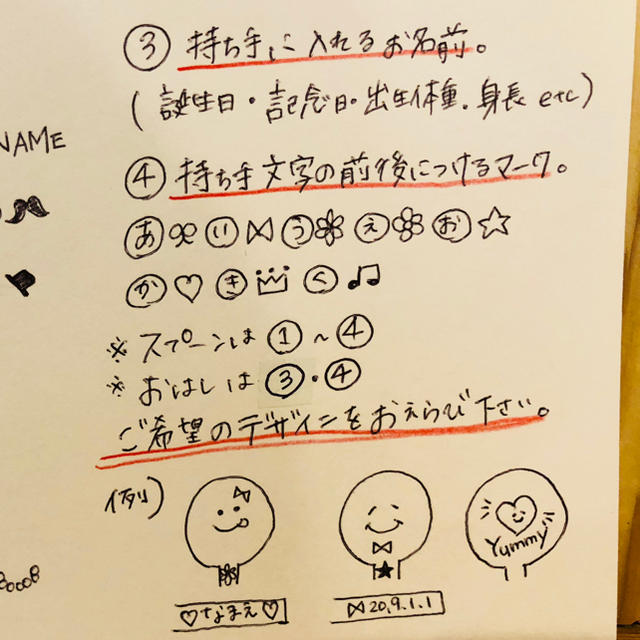 ③ 持ち手に入れるお名前。
(誕生日・記念日・出生体重.身長 etc)
NAME
④ 持ち手文字の前後につけるマーク。
あ い う え お ☆
か ♡ き く ♫
※ スプーンは ① ~ ④
※ おはしは ③・④
ご希望のデザインをおえらび下さい。
例)
Yummy
♡なまえ♡
20.9.1.1